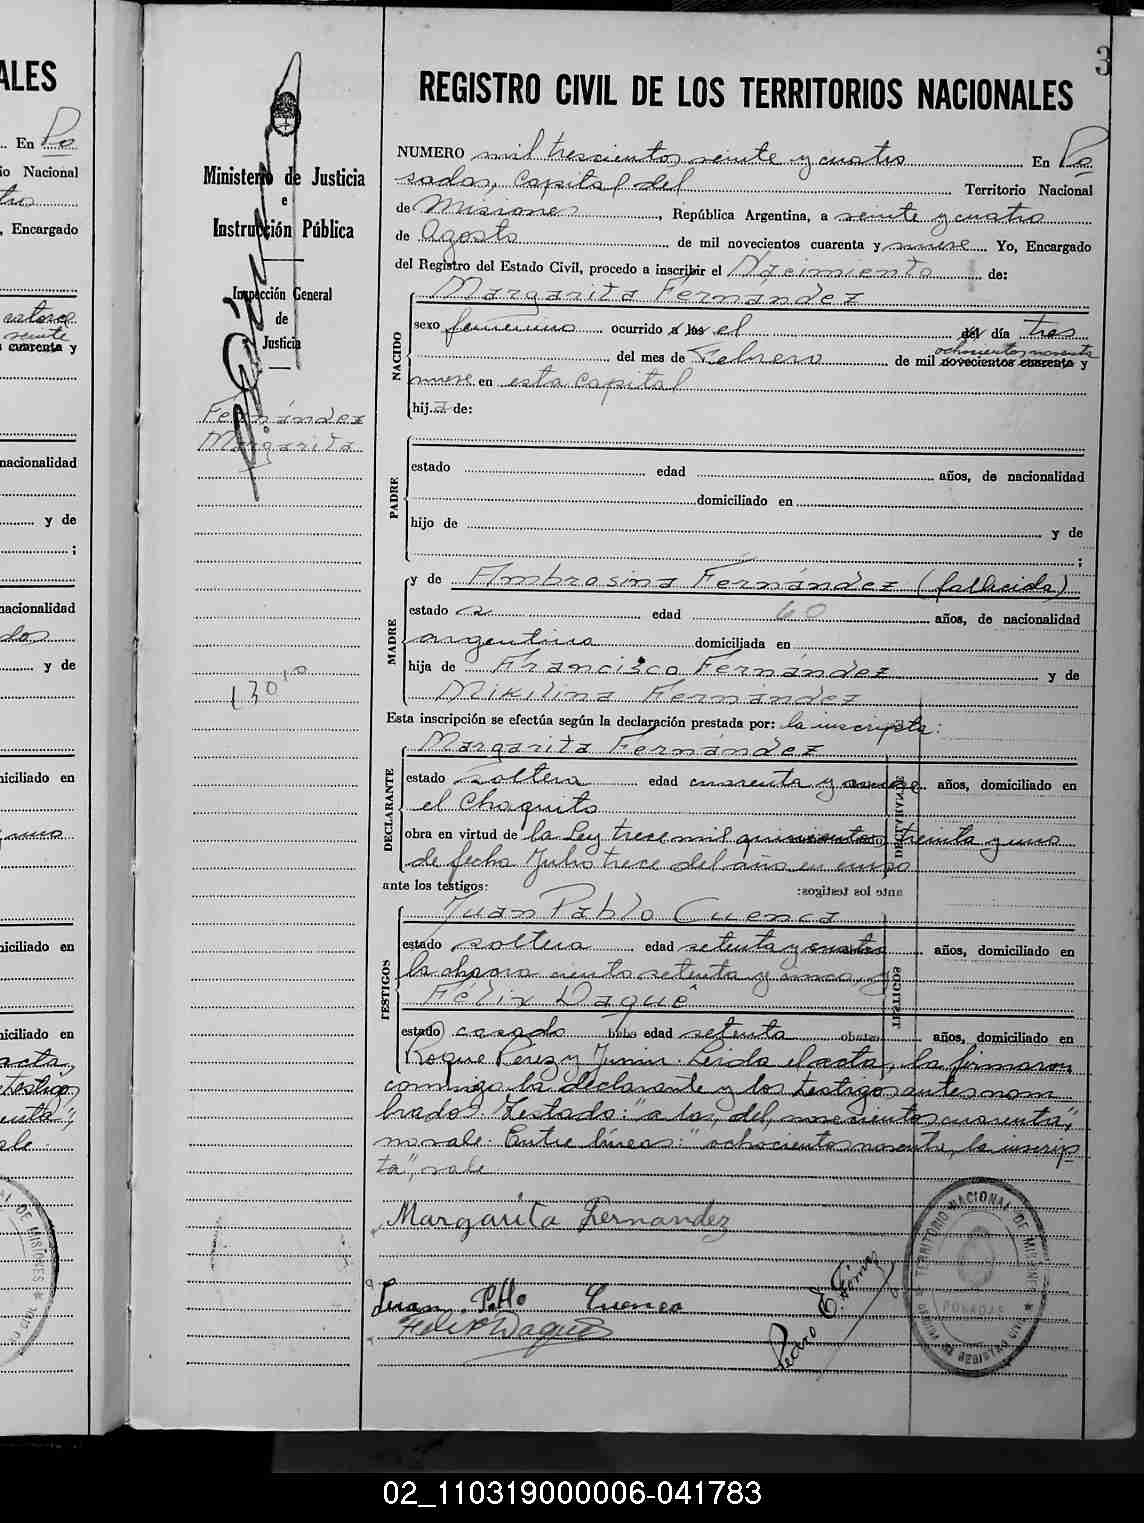 ALES
En Po
io Nacional
tro
, Encargado
catorce
veinte
s cuarenta y
nacionalidad
y de
;
nacionalidad
dos
y de
niciliado en
y uno
niciliado en
niciliado en
acta,
testigos
enta",
ale.
3
REGISTRO CIVIL DE LOS TERRITORIOS NACIONALES
Ministerio de Justicia
e
Instrucción Pública
Inspección General
de
Justicia
Fernández
Margarita
NUMERO mil trescientos veinte y cuatro En Po
sadas, Capital del Territorio Nacional
de Misiones, República Argentina, a veinte y cuatro
de Agosto de mil novecientos cuarenta y nueve Yo, Encargado
del Registro del Estado Civil, procedo a inscribir el Nacimiento de:
Margarita Fernández
NACIDO
sexo femenino ocurrido a las el del día tres
ochocientos noventa
del mes de Febrero de mil novecientos cuarenta y
nueve en esta capital
hija de:
PADRE
estado edad años, de nacionalidad
domiciliado en
hijo de y de
;
MADRE
y de Ambrosina Fernández (fallecida)
estado a edad 60 años, de nacionalidad
argentina domiciliada en
hija de Francisco Fernández y de
Mikilina Fernández
Esta inscripción se efectúa según la declaración prestada por: la inscripta:
DECLARANTE
Margarita Fernández
estado soltera edad cuarenta y años, domiciliado en
el Chaquito
obra en virtud de la Ley trece mil quinientos treinta y uno
de fecha Julio trece del año en curso
ante los testigos:
TESTIGOS
Juan Pablo Cuenca
estado soltero edad setenta y cuatro años, domiciliado en
la chacra ciento setenta y cinco, y
Félix Daqué
estado casado edad setenta años, domiciliado en
Roque Perez y Junin. Leida el acta, la firmaron
conmigo la declarante y los testigos antes nom
brados. Testado: "a las, del, novecientos cuarenta",
no vale. Entre líneas: "ochocientos noventa, la inscrip
ta", vale
Margarita Fernandez
Juan Pablo Cuenca
Felix Daqué
Pedro E. Gómez
TERRITORIO NACIONAL DE MISIONES
POSADAS
OFICINA DE REGISTRO CIVIL
02_110319000006-041783